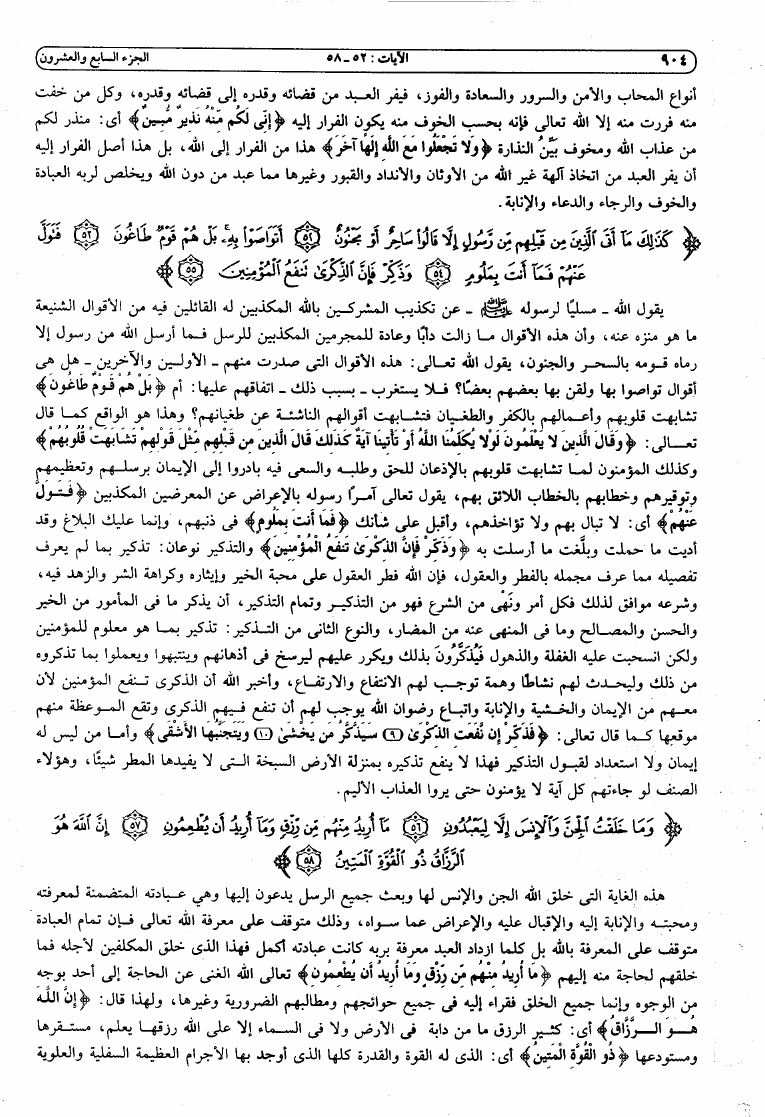 ٩٠٤ الآيات : ٥٢ ـ ٥٨ الجزء السابع والعشرون
أنواع المحاب والأمن والسرور والسعادة والفوز، فيفر العبد من قضائه وقدره إلى قضائه وقدره، وكل من خفت
منه فررت منه إلا الله تعالى فإنه بحسب الخوف منه يكون الفرار إليه ﴿إِنِّي لَكُم مِّنْهُ نَذِيرٌ مُّبِينٌ﴾ أى: منذر لكم
من عذاب الله ومخوف بَيِّنُ النذارة ﴿وَلا تَجْعَلُوا مَعَ اللَّهِ إِلَهًا آخَرَ﴾ هذا من الفرار إلى الله، بل هذا أصل الفرار إليه
أن يفر العبد من اتخاذ آلهة غير الله من الأوثان والأنداد والقبور وغيرها مما عبد من دون الله ويخلص لربه العبادة
والخوف والرجاء والدعاء والإنابة.
﴿ كَذَٰلِكَ مَآ أَتَى ٱلَّذِينَ مِن قَبْلِهِم مِّن رَّسُولٍ إِلَّا قَالُوا۟ سَاحِرٌ أَوْ مَجْنُونٌ ٥٢ أَتَوَاصَوْا۟ بِهِۦ ۚ بَلْ هُمْ قَوْمٌ طَاغُونَ ٥٣ فَتَوَلَّ
عَنْهُمْ فَمَآ أَنتَ بِمَلُومٍ ٥٤ وَذَكِّرْ فَإِنَّ ٱلذِّكْرَىٰ تَنفَعُ ٱلْمُؤْمِنِينَ ٥٥ ﴾
يقول الله ـ مسليًا لرسوله ﷺ ـ عن تكذيب المشركين بالله المكذبين له القائلين فيه من الأقوال الشنيعة
ما هو منزه عنه، وأن هذه الأقوال ما زالت دابًا وعادة للمجرمين المكذبين للرسل فما أرسل الله من رسول إلا
رماه قومه بالسحر والجنون، يقول الله تعالى: هذه الأقوال التى صدرت منهم ـ الأولين والآخرين ـ هل هى
أقوال تواصوا بها ولقن بها بعضهم بعضًا؟ فلا يستغرب ـ بسبب ذلك ـ اتفاقهم عليها: أم ﴿بَلْ هُمْ قَوْمٌ طَاغُونَ﴾
تشابهت قلوبهم وأعمالهم بالكفر والطغيان فتشابهت أقوالهم الناشئة عن طغيانهم؟ وهذا هو الواقع كما قال
تعالى: ﴿وَقَالَ الَّذِينَ لا يَعْلَمُونَ لَوْلا يُكَلِّمُنَا اللَّهُ أَوْ تَأْتِينَا آيَةٌ كَذَلِكَ قَالَ الَّذِينَ مِن قَبْلِهِم مِّثْلَ قَوْلِهِمْ تَشَابَهَتْ قُلُوبُهُمْ﴾
وكذلك المؤمنون لما تشابهت قلوبهم بالإذعان للحق وطلبه والسعى فيه بادروا إلى الإيمان برسلهم وتعظيمهم
وتوقيرهم وخطابهم بالخطاب اللائق بهم، يقول تعالى آمرًا رسوله بالإعراض عن المعرضين المكذبين ﴿فَتَوَلَّ
عَنْهُمْ﴾ أى: لا تبال بهم ولا تؤاخذهم، وأقبل على شأنك ﴿فَمَا أَنتَ بِمَلُومٍ﴾ فى ذنبهم، وإنما عليك البلاغ وقد
أديت ما حملت وبلَّغت ما أرسلت به ﴿وَذَكِّرْ فَإِنَّ الذِّكْرَىٰ تَنفَعُ الْمُؤْمِنِينَ﴾ والتذكير نوعان: تذكير بما لم يعرف
تفصيله مما عرف مجمله بالفطر والعقول، فإن الله فطر العقول على محبة الخير وإيثاره وكراهة الشر والزهد فيه،
وشرعه موافق لذلك فكل أمر ونَهْى من الشرع فهو من التذكير وتمام التذكير، أن يذكر ما فى المأمور من الخير
والحسن والمصالح وما فى المنهى عنه من المضار، والنوع الثانى من التذكير: تذكير بما هو معلوم للمؤمنين
ولكن انسحبت عليه الغفلة والذهول فَيُذَكَّرُونَ بذلك ويكرر عليهم ليرسخ فى أذهانهم وينتبهوا ويعملوا بما تذكروه
من ذلك وليحدث لهم نشاطًا وهمة توجب لهم الانتفاع والارتفاع، وأخبر الله أن الذكرى تنفع المؤمنين لأن
معهم من الإيمان والخشية والإنابة واتباع رضوان الله يوجب لهم أن تنفع فيهم الذكرى وتقع الموعظة منهم
موقعها كما قال تعالى: ﴿فَذَكِّرْ إِن نَّفَعَتِ الذِّكْرَىٰ (٩) سَيَذَّكَّرُ مَن يَخْشَىٰ (١٠) وَيَتَجَنَّبُهَا الأَشْقَى﴾ وأما من ليس له
إيمان ولا استعداد لقبول التذكير فهذا لا ينفع تذكيره بمنزلة الأرض السبخة التى لا يفيدها المطر شيئًا، وهؤلاء
الصنف لو جاءتهم كل آية لا يؤمنون حتى يروا العذاب الأليم.
﴿ وَمَا خَلَقْتُ ٱلْجِنَّ وَٱلْإِنسَ إِلَّا لِيَعْبُدُونِ ٥٦ مَآ أُرِيدُ مِنْهُم مِّن رِّزْقٍ وَمَآ أُرِيدُ أَن يُطْعِمُونِ ٥٧ إِنَّ ٱللَّهَ هُوَ
ٱلرَّزَّاقُ ذُو ٱلْقُوَّةِ ٱلْمَتِينُ ٥٨ ﴾
هذه الغاية التى خلق الله الجن والإنس لها وبعث جميع الرسل يدعون إليها وهي عبادته المتضمنة لمعرفته
ومحبته والإنابة إليه والإقبال عليه والإعراض عما سواه، وذلك متوقف على معرفة الله تعالى فإن تمام العبادة
متوقف على المعرفة بالله بل كلما ازداد العبد معرفة بربه كانت عبادته أكمل فهذا الذى خلق المكلفين لأجله فما
خلقهم لحاجة منه إليهم ﴿مَا أُرِيدُ مِنْهُم مِّن رِّزْقٍ وَمَا أُرِيدُ أَن يُطْعِمُونِ﴾ تعالى الله الغنى عن الحاجة إلى أحد بوجه
من الوجوه وإنما جميع الخلق فقراء إليه فى جميع حوائجهم ومطالبهم الضرورية وغيرها، ولهذا قال: ﴿إِنَّ اللَّهَ
هُوَ الرَّزَّاقُ﴾ أى: كثير الرزق ما من دابة فى الأرض ولا فى السماء إلا على الله رزقها يعلم، مستقرها
ومستودعها ﴿ذُو الْقُوَّةِ الْمَتِينُ﴾ أى: الذى له القوة والقدرة كلها الذى أوجد بها الأجرام العظيمة السفلية والعلوية